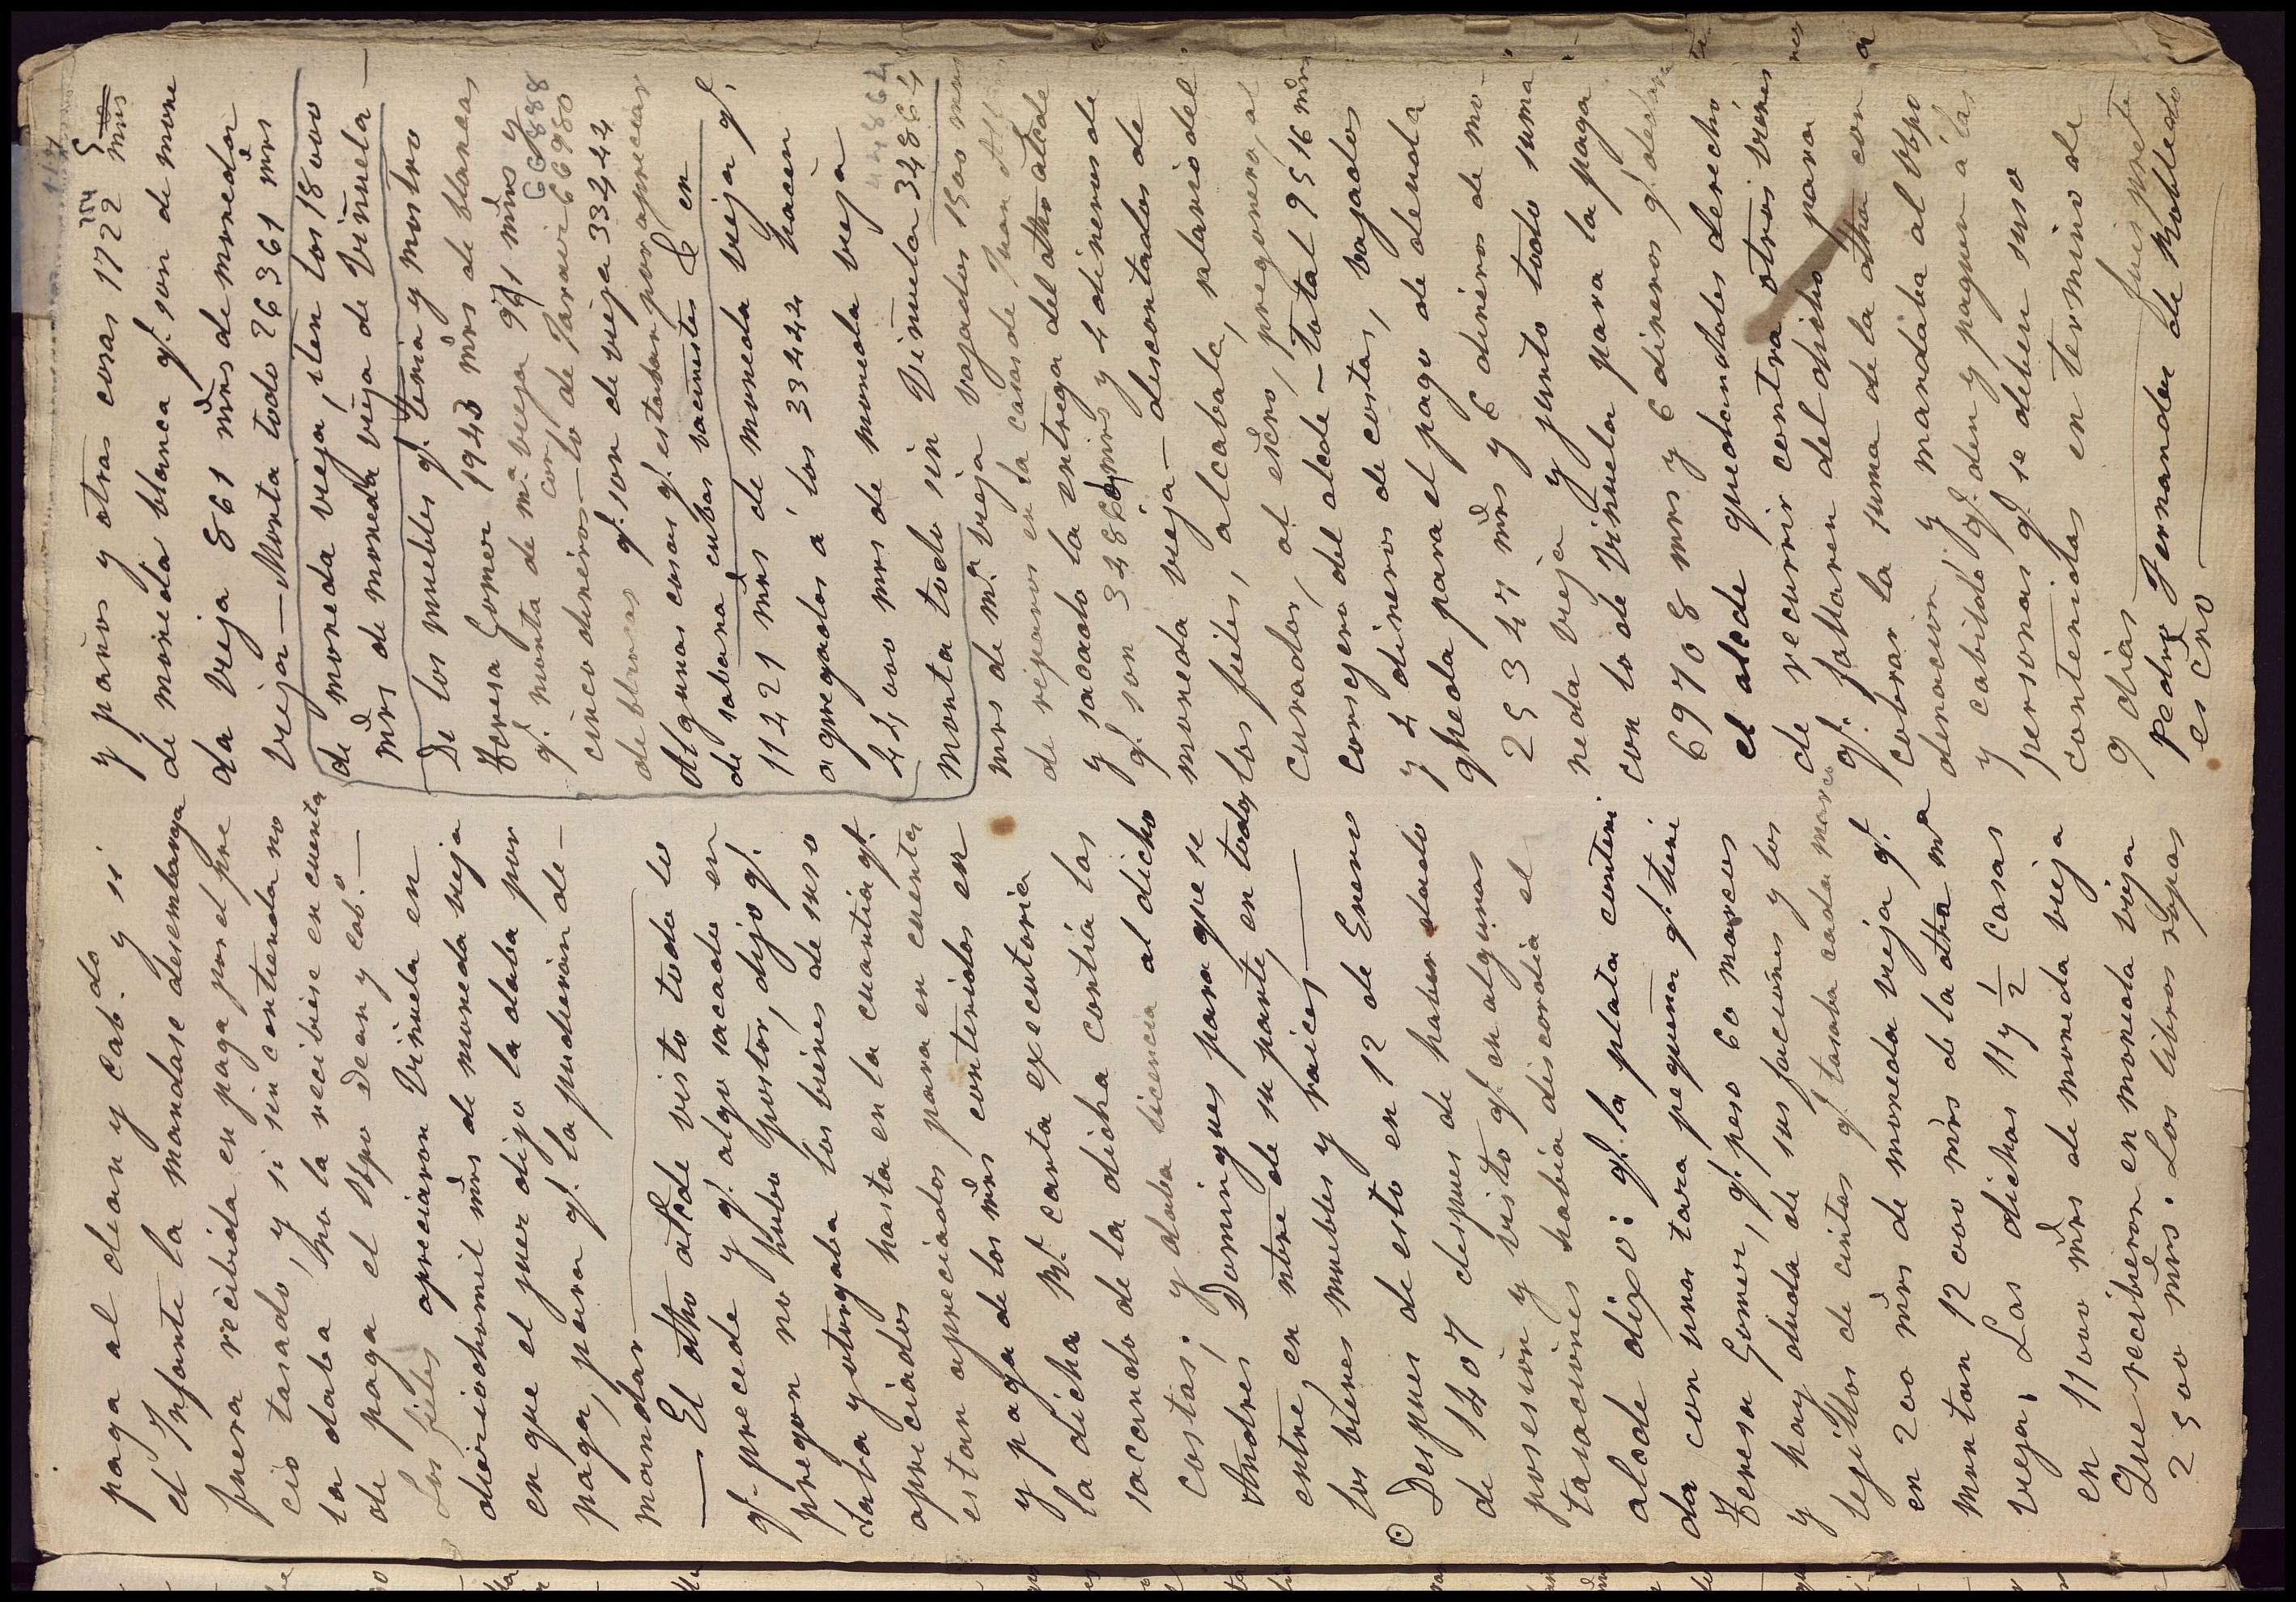 paga al dean y cab.do y si
el Infante la mandase desembarga
fuera recibida en paga por el pre
cio tasado, y si su contienda no
la daba, no la recibiese en cuenta
de paga el Obpo Dean y cab.o —
Los fieles apreciaron Viñuela en
dieciochomil mrs de moneda vieja
en que el juez dijo la daba por
paga, para q.e la pudieran de —
mandar —
— El dho alcde visto todo lo
q.e precede y q.e algo sacado en
pregon no hubo postor, dijo q.e
daba y otorgaba los bienes de suso
apreciados hasta en la cuantia q.e
estan apreciados para en cuenta
y paga de los mrs contenidos en
la dicha m.e carta executoria
sacando de la dicha contia las
costas; y daba licencia al dicho
Andres Domingues para que se
entre, en nbre de su parte, en todos
los bienes muebles y raices —
Despues de esto en 12 de Enero
de 1407 despues de haber dado
posesion y visto q.e en algunas
tasaciones habia discordia el
alcde dixo: q.e la plata conteni
da con una tara pequeña q.e tiene
Teresa Gomez, q.e peso 60 marcos
y hay duda de sus faciones y los
tejillos de cintas q.e tasaba cada marco
en 200 mrs de moneda vieja q.e
montan 12000 mrs de la dha m.a
vieja. Las dichas 11 y 1/2 casas
en 11000 mrs de moneda vieja
Que recibieron en moneda vieja
2500 mrs. Los libros ropas
y paños y otras cosas 1722 mrs
de moneda blanca q.e son de mone
da vieja 861 mrs de moneda
vieja — Monta todo 26361 mrs
de moneda vieja, sten los 18000
mrs de moneda vieja de Viñuela —
De los muebles q.e tenia y mostro
Teresa Gomez 1943 mrs de blancas
q.e monta de m.a vieja 971 mrs y
cinco dineros — lo de Taravi 66980
de blancas q.e son de vieja 33442
Algunas cosas q.e estaban por apreciar
de sabana cubas bacinetes & en
11421 mrs de moneda vieja q.e
agregados a los 33442 hacen
44000 mrs de moneda vieja
monta todo sin Viñuela 34864
mrs de m.a vieja bajados 1500 mrs
de reparos en la casas de Juan
y sacado la entrega del dho alcde
q.e son 3486 mrs y 4 dineros de
moneda vieja — descontados de
los fieles, alcavala, salario del
curador, al escro, pregonero, al
consejero del alcde — total 9516 mrs
y 4 dineros de costas, bajados
queda para el pago de deuda
25347 mrs y 6 dineros de mo-
neda vieja y junto todo suma
con lo de Viñuela para la paga
69708 mrs y 6 dineros q.e declara
el alcde quedandoles derecho
de recurrir contra otros bienes
q.e fallaren del dicho para
cobrar la suma de la dha con
denacion; y mandaba al Obpo
y cabildo q.e den y paguen a las
personas q.e se deben suso
contenidas en termino de
9 dias — fuis pret
Pedro Fernandez de Robledo
escno